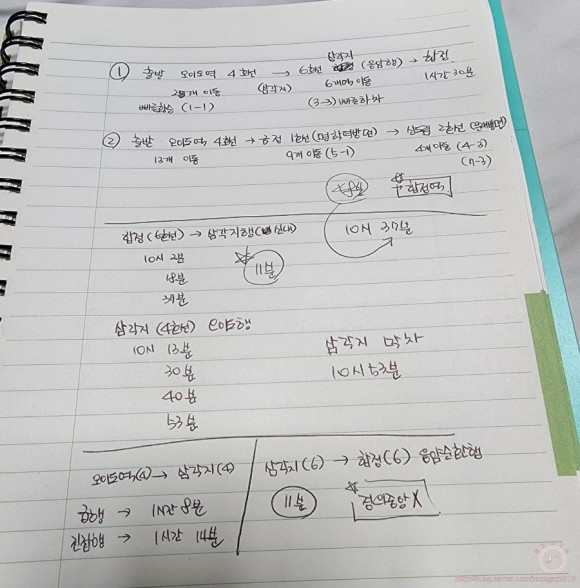 ① 출발 오이도역 4호선 → 6호선 삼각지 (응암행) → 합정
28개 이동 (삼각지) 6개역 이동 1시간 30분
빠른환승 (1-1) (3-3) 빠른하차
② 출발 오이도역 4호선 → 금정 1호선 (명학역방면) → 신도림 2호선 (문래방면)
13개 이동 9개 이동 (5-1) 4개 이동 (4-3)
합정역
합정 (6호선) → 삼각지행 (봉화산행
10시 37분
10시 2분
11분
18분
37분
삼각지 (4호선) 오이도행
10시 13분 삼각지 막차
30분 10시 53분
40분
53분
오이도역(4) → 삼각지(4)
삼각지(6) → 합정(6) 응암순환행
급행 → 1시간 8분
11분
진접행 → 1시간 14분